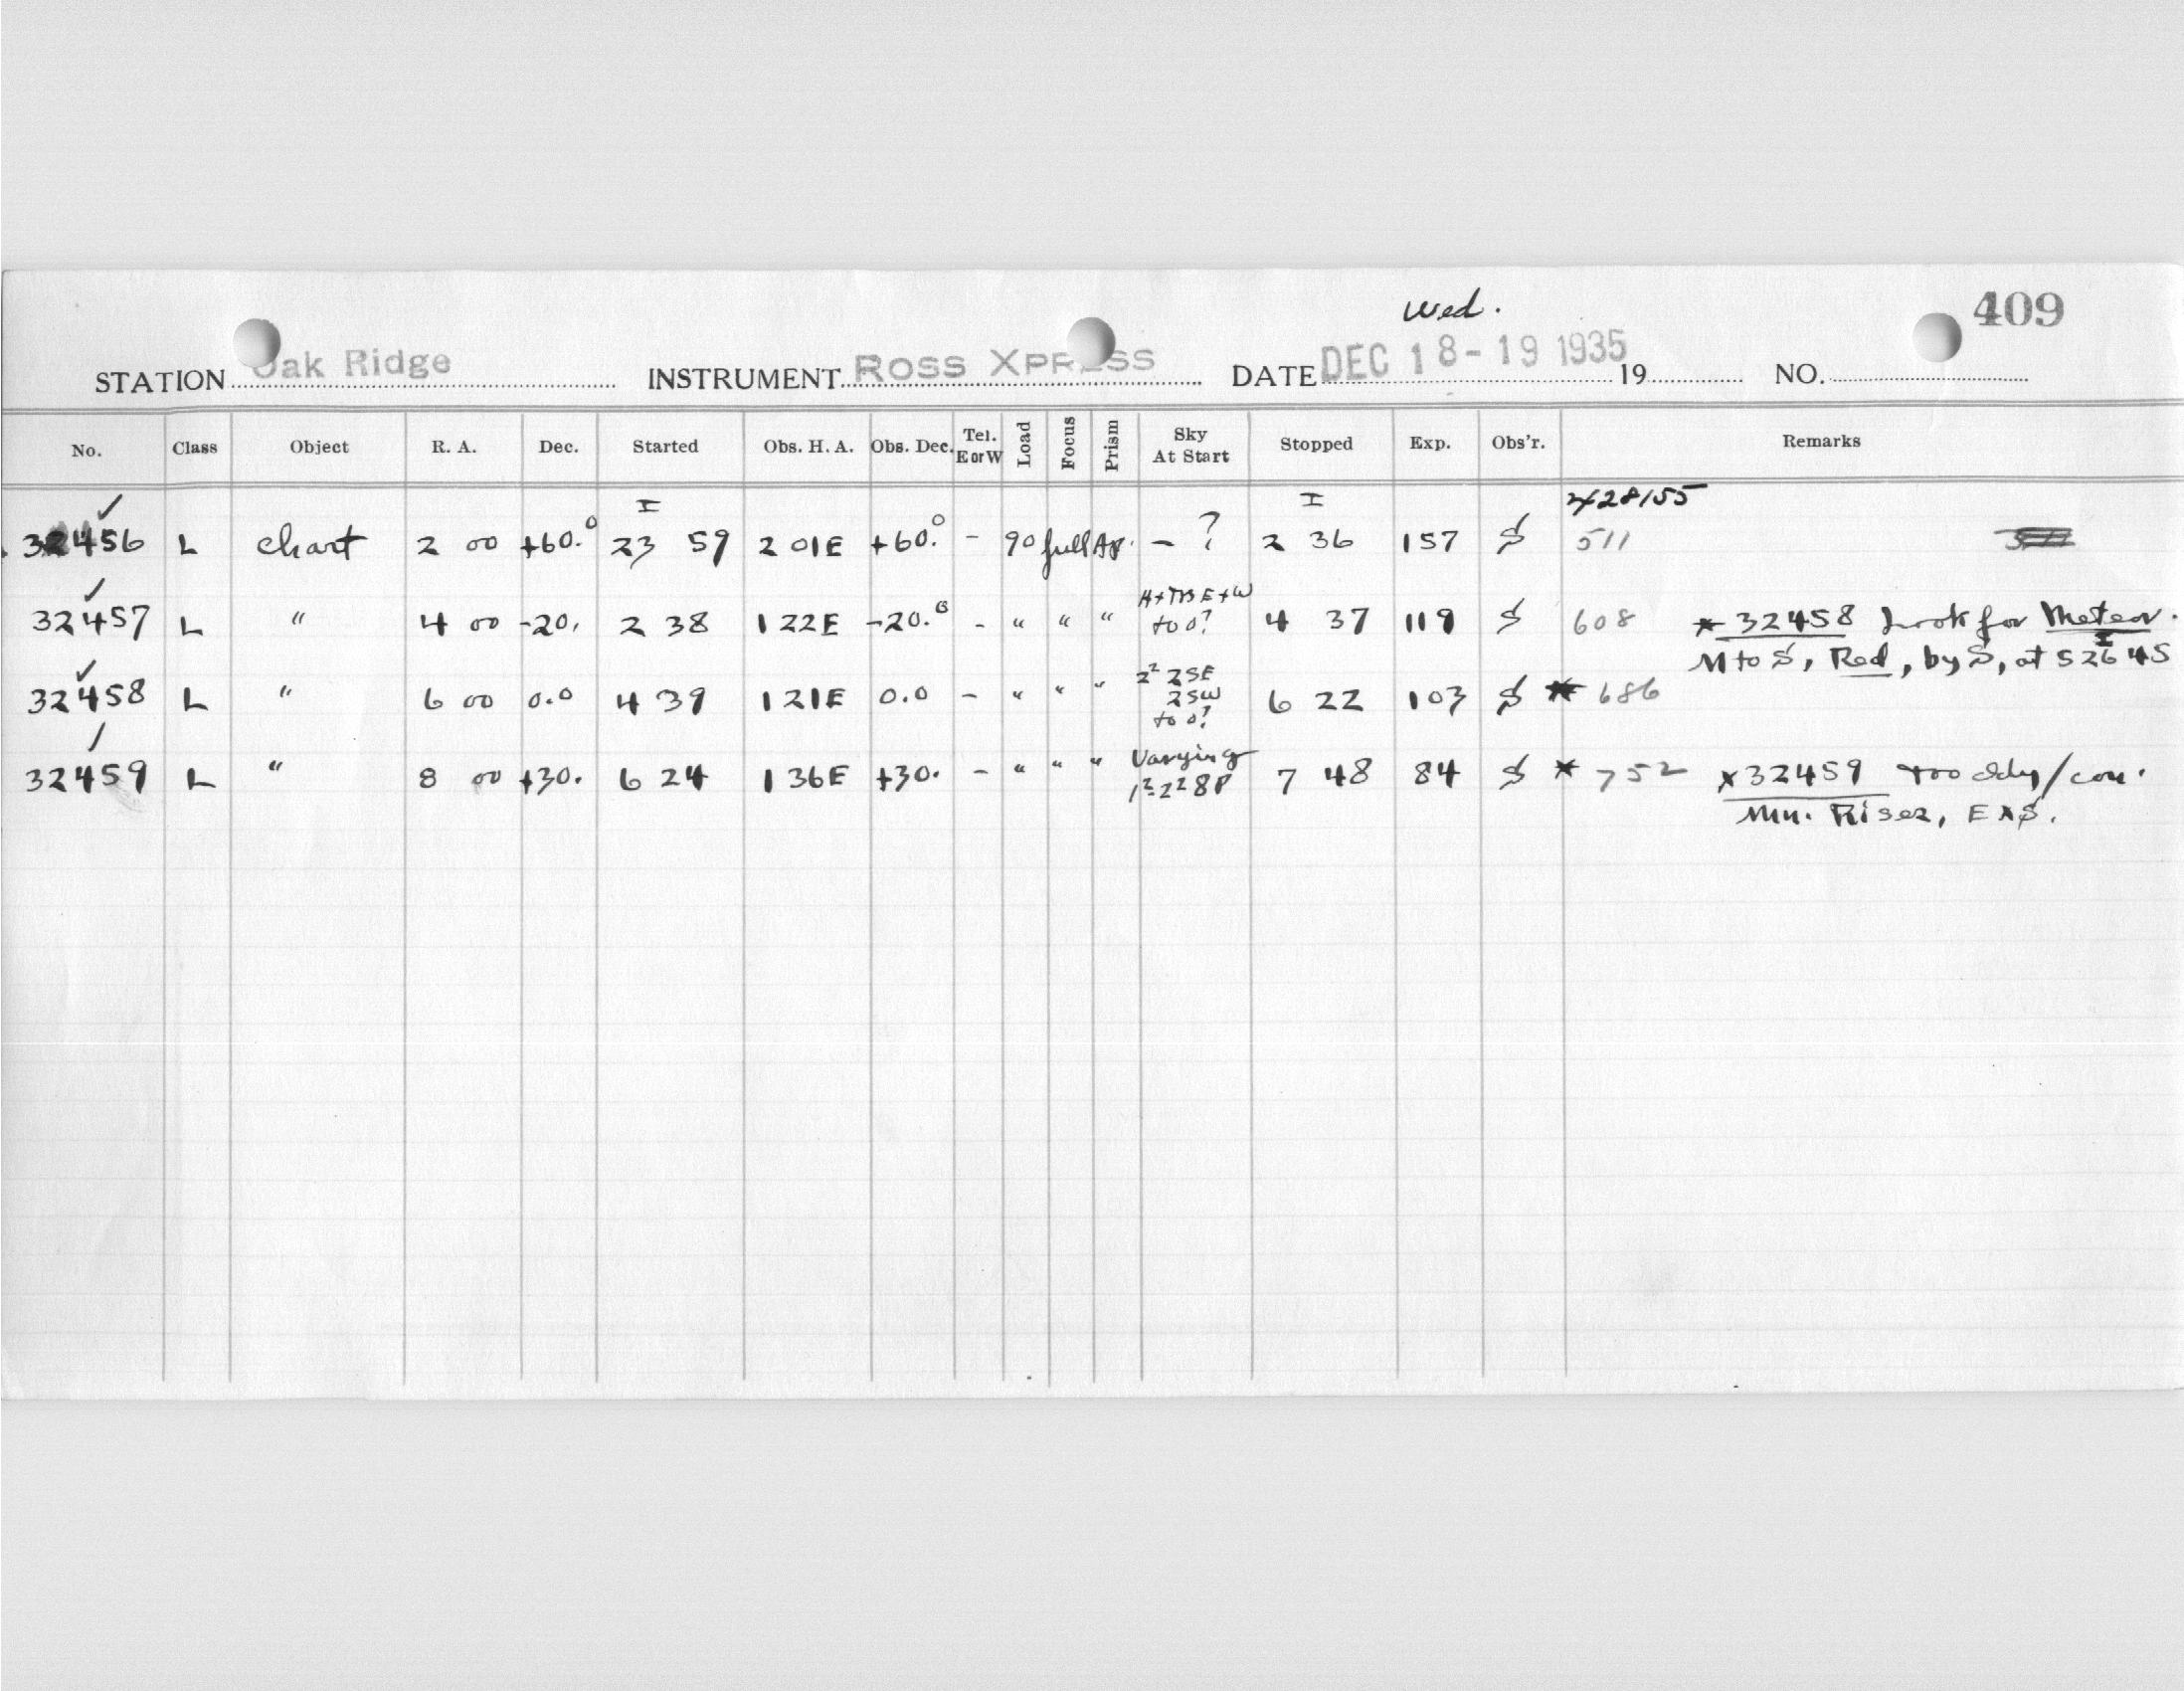 Wed.
409
STATION Oak Ridge INSTRUMENT ROSS XPRESS DATE DEC 18-19 1935 19 NO.
No. Class Object R. A. Dec. Started Obs. H. A. Obs. Dec. Tel. E or W Load Focus Prism Sky At Start Stopped Exp. Obs'r. Remarks
I I 428155
32456 L chart 2 00 +60.° 23 59 2 01E +60.° - 90 full Ap. - ? 2 36 157 S 511
32457 L " 4 00 -20. 2 38 1 22E -20.° - " " " E+W to 0? 4 37 119 S 608 * 32458 Look for Meteor.
M to S, Red, by S, at 5 26 45
I
32458 L " 6 00 0.0 4 39 1 21E 0.0 - " " " 2² 2SE 2SW to 0? 6 22 103 S * 686
32459 L " 8 00 +30. 6 24 1 36E +30. - " " " Varying 7 48 84 S * 752 x 32459 too cldy/con.
Mn. Rises, E x S.